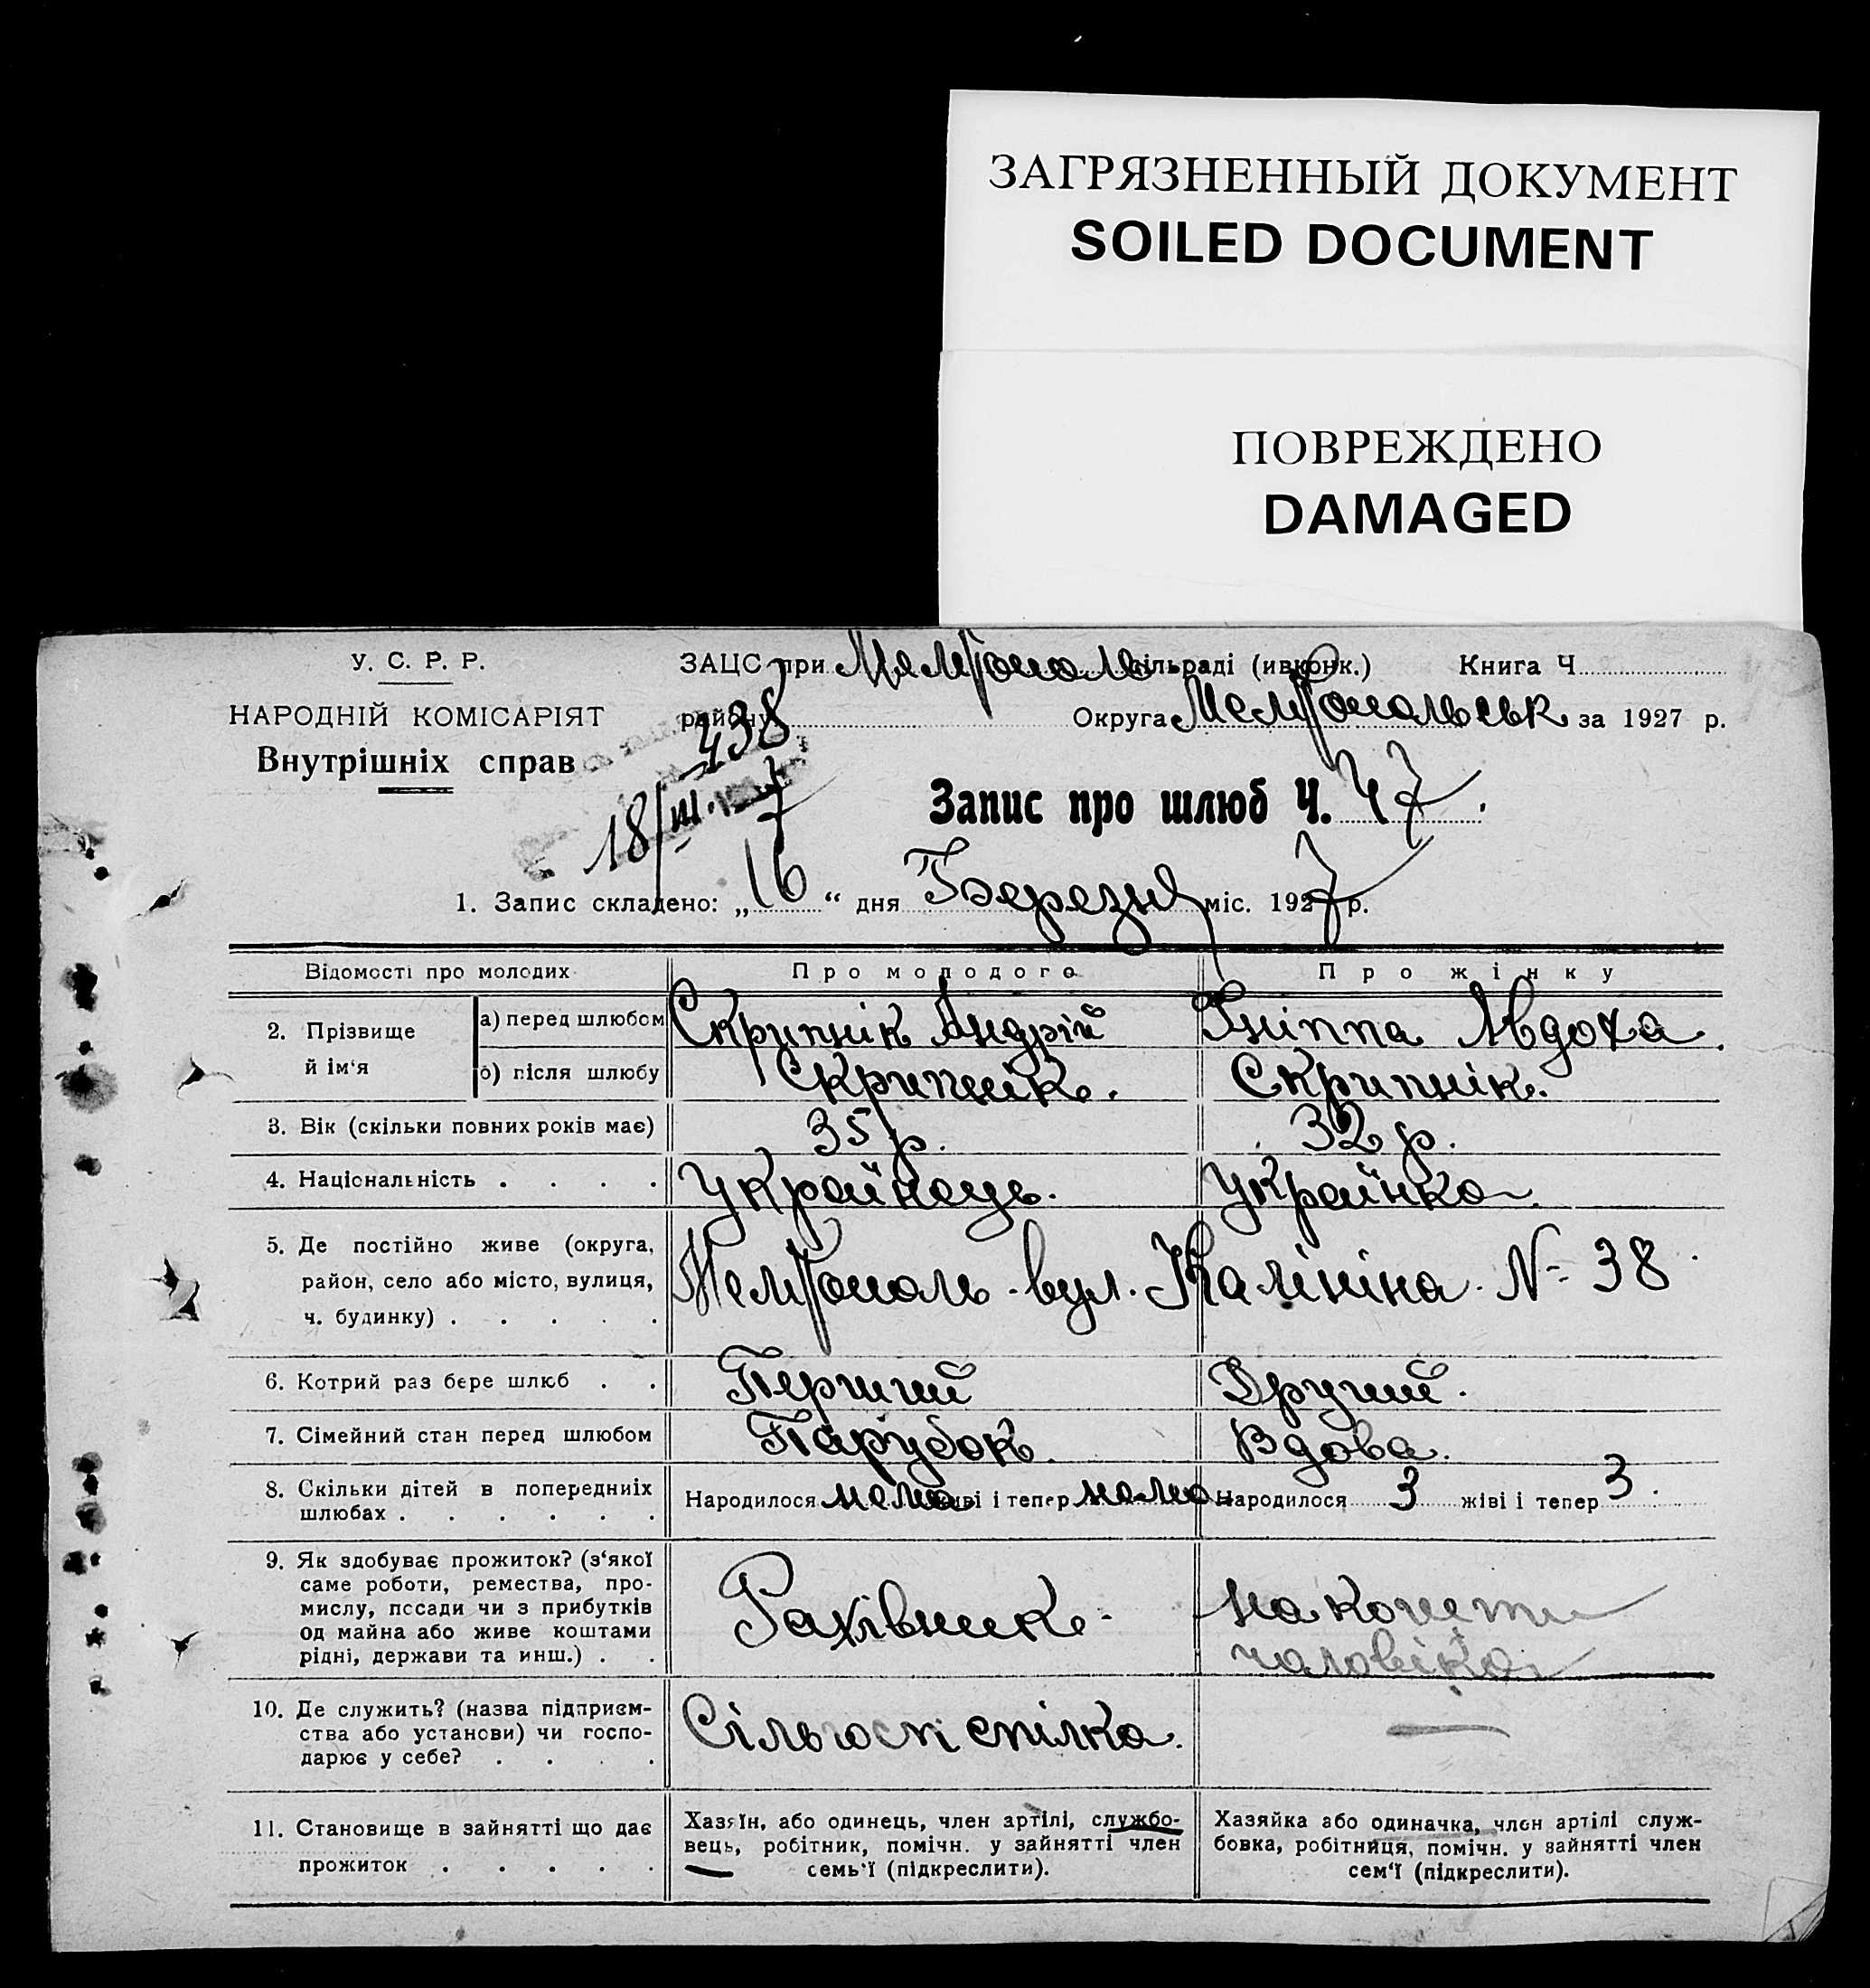 ЗАГРЯЗНЕННЫЙ ДОКУМЕНТ
SOILED DOCUMENT
ПОВРЕЖДЕНО
DAMAGED
У. С. Р. Р.
НАРОДНІЙ КОМІСАРІЯТ
Внутрішніх справ
ЗАЦС при сільраді (ивконк.) Книга Ч.
району Округа Мелітопольськ за 1927 р.
438
18/III. 7
Запис про шлюб Ч. 47
1. Запис складено: „16“ дня Березня міс. 1927 р.
Відомості про молодих Про молодого Про жінку
2. Прізвище й ім'я
а) перед шлюбом Скрипнік Андрій Авдотя
б) після шлюбу Скрипнік. Скрипнік.
3. Вік (скільки повних років має) 35 р. 32 р.
4. Національність . . . . Українець. Українка
5. Де постійно живе (округа,
район, село або місто, вулиця,
ч. будинку) . . . . .
Мелітополь. вул. Калініна. № 38
6. Котрий раз бере шлюб . . Перший Другий.
7. Сімейний стан перед шлюбом Парубок. Вдова.
8. Скільки дітей в попередніх
шлюбах . . . . . .
Народилося нема живі і тепер нема Народилося 3 живі і тепер 3.
9. Як здобуває прожиток? (з'якої
саме роботи, ремества, про-
мислу, посади чи з прибутків
од майна або живе коштами
рідні, держави та инш.) . .
Рахівник на кошти
чоловіка
10. Де служить? (назва підприєм-
ства або установи) чи госпо-
дарює у себе? . . . .
Сільгосп спілка.
11. Становище в зайнятті що дає
прожиток . . . . .
Хазяїн, або одинець, член артілі, службо-
вець, робітник, помічн. у зайнятті член
семь'ї (підкреслити).
Хазяйка або одиначка, член артілі служ-
бовка, робітниця, помічн. у зайнятті член
сем'ї (підкреслити).